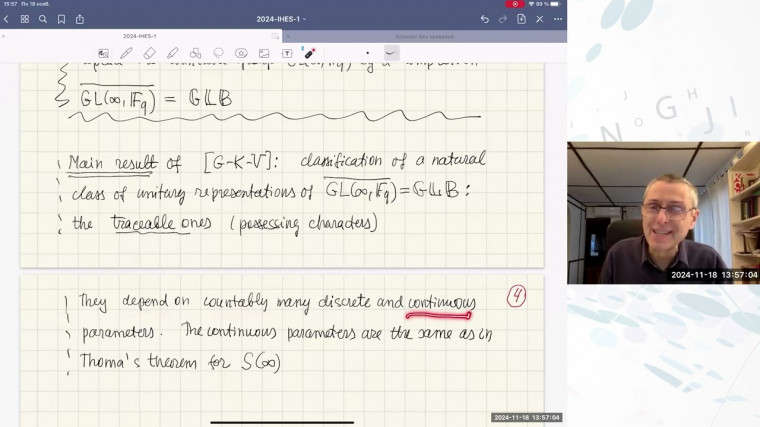 15:57 Пн 18 нояб.
89 %
2024-IHES-1
2024-IHES-1
GL(∞, 𝔽q) = 𝔾𝕃𝔹
Main result of [G-K-V]: classification of a natural
class of unitary representations of GL(∞, 𝔽q) = 𝔾𝕃𝔹:
the traceable ones (possessing characters)
They depend on countably many discrete and continuous
4
parameters. The continuous parameters are the same as in
Thoma's theorem for S(∞)
2024-11-18 13:57:04
2024-11-18 13:57:04
N O G H J I